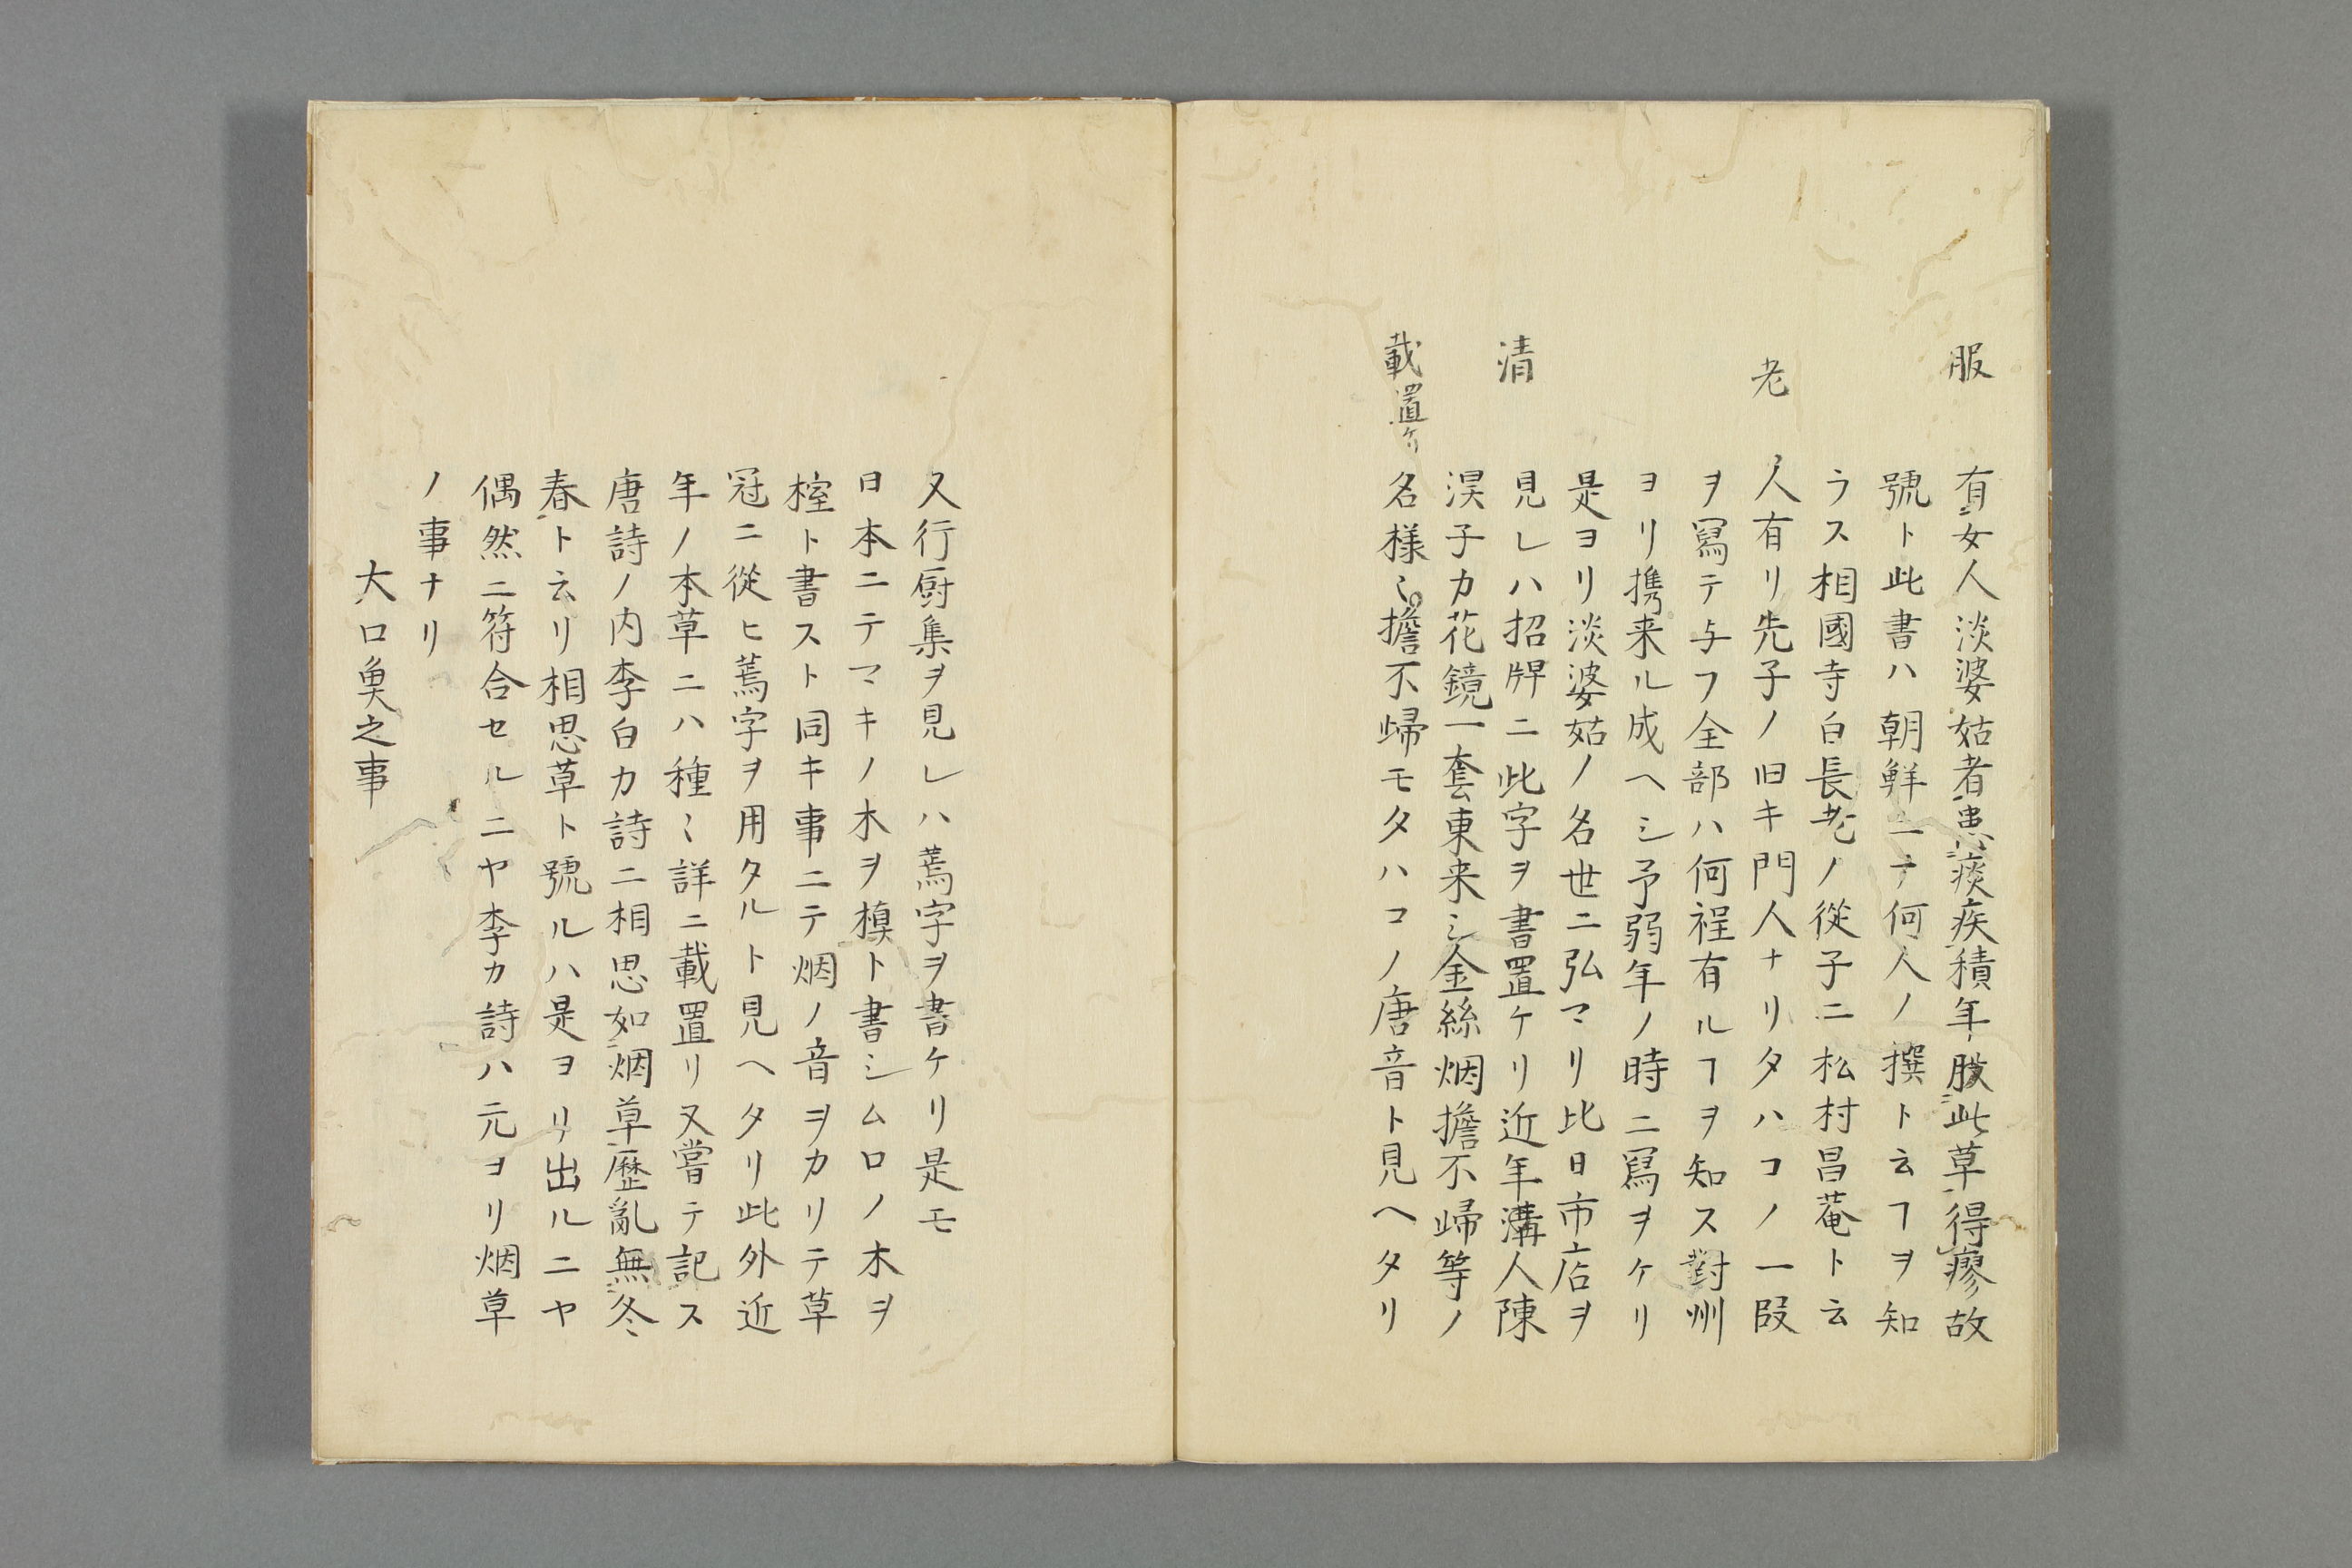 服
有女人淡婆姑者患痰疾積年服此草得瘳故
號ト此書ハ朝鮮ニテ何人ノ撰ト云ヿヲ知
ラス相國寺白長老ノ從子ニ松村昌菴ト云
老
人有リ先子ノ旧キ門人ナリタハコノ一段
ヲ冩テ与フ全部ハ何程有ルヿヲ知ス對州
ヨリ携来ル成ヘシ予弱年ノ時ニ冩ヲケリ
是ヨリ淡婆姑ノ名世ニ弘マリ比日市店ヲ
清
見レハ招牌ニ此字ヲ書置ケリ近年溝人陳
淏子カ花鏡一套東来シ金絲烟擔不歸等ノ
載置ケリ
名様〻擔不歸モタハコノ唐音ト見ヘタリ
又行厨集ヲ見レハ蔫字ヲ書ケリ是モ
日本ニテマキノ木ヲ槙ト書シムロノ木ヲ
榁ト書スト同キ事ニテ烟ノ音ヲカリテ草
冠ニ從ヒ蔫字ヲ用タルト見ヘタリ此外近
年ノ本草ニハ種〻詳ニ載置リ又嘗テ記ス
唐詩ノ内李白カ詩ニ相思如烟草歴亂無冬
春ト云リ相思草ト號ルハ是ヨリ出ルニヤ
偶然ニ符合セルニヤ李カ詩ハ元ヨリ烟草
ノ事ナリ
大口魚之事